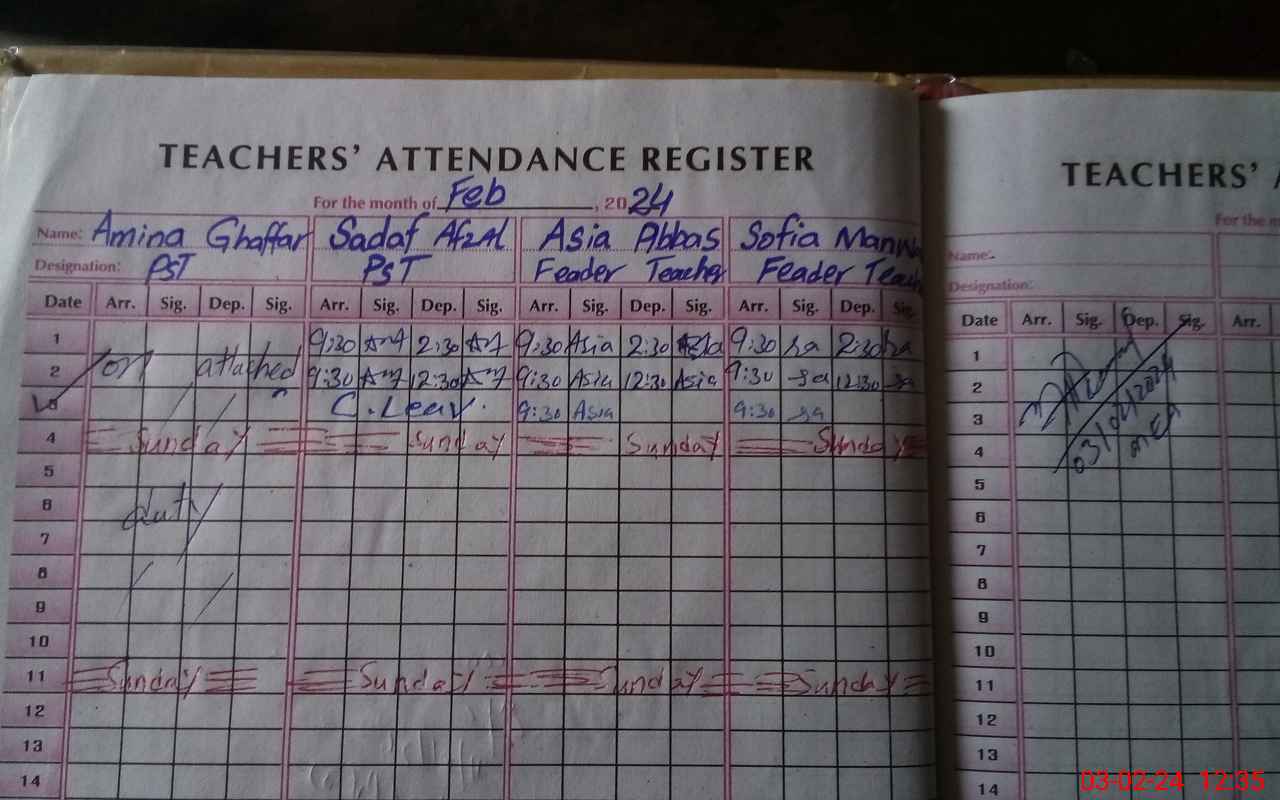 TEACHERS' ATTENDANCE REGISTER
For the month of Feb, 2024
Name: Amina Ghaffar Sadaf Afzal Asia Abbas Sofia
Designation: PST PST Feader Teacher Feader
Date Arr. Sig. Dep. Sig. Arr. Sig. Dep. Sig. Arr. Sig. Dep. Sig. Arr. Sig. Dep. Sig.
1 9:30 2:30 9:30 Asia 2:30 Asia 9:30 sa 2:30 sa
2 on attached 9:30 12:30 9:30 Asia 12:30 Asia 9:30 sa 12:30 sa
3 C. Leav. 9:30 Asia 9:30 sa
4 Sunday Sunday Sunday Sunday
5
6 duty
7
8
9
10
11 Sunday Sunday Sunday Sunday
12
13
14
TEACHERS'
For the
Name:
Designation:
Date Arr. Sig. Dep. Sig. Arr.
1
2
3
4
03/02/2024
5
6
7
8
9
10
11
12
13
14
03-02-24 12:35